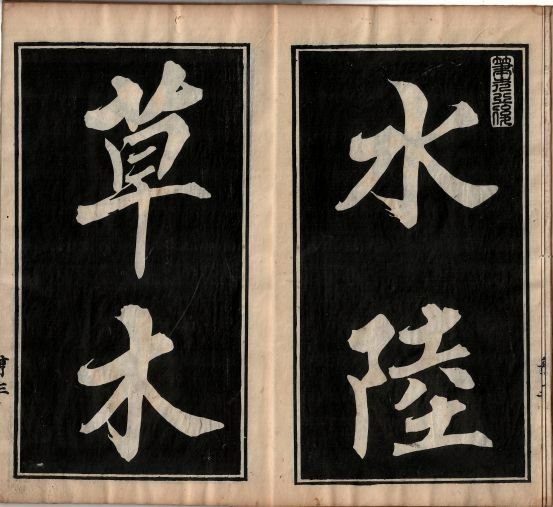 水陸
草木